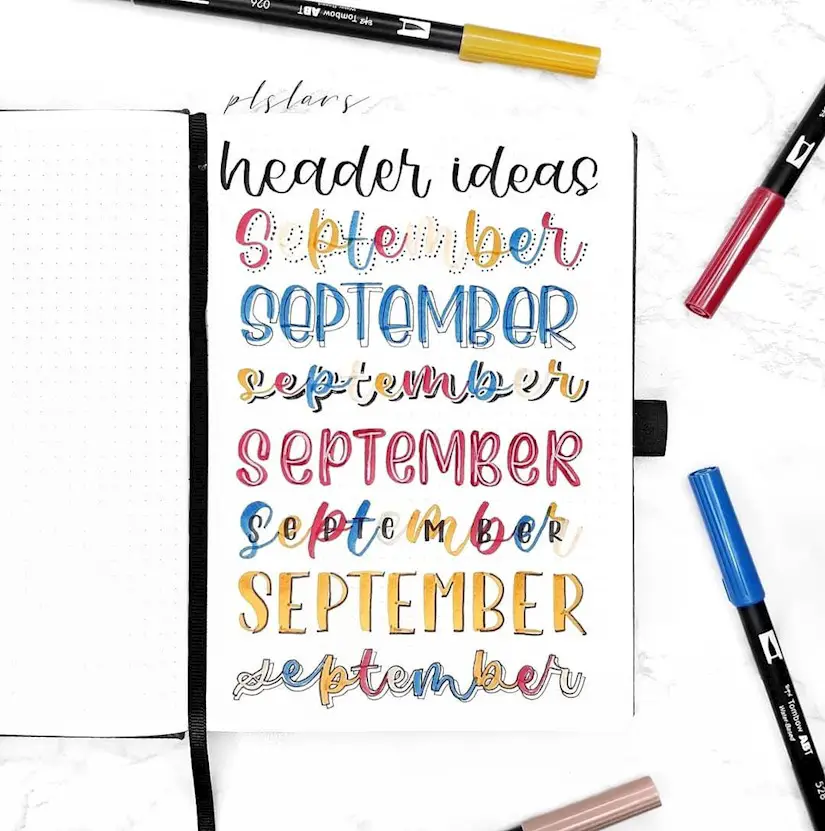 026 Tombow ABT
plslars
header ideas
September
SEPTEMBER
september
SEPTEMBER
September
SEPTEMBER
SEPTEMBER
september
Tombow ABT
Water-Based
528